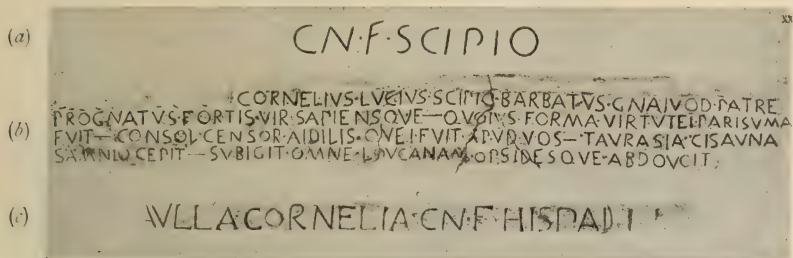 xx
(a) CN·F·SCIPIO
(b) CORNELIVS·LVCIVS·SCIPIO·BARBATVS·GNAIVOD·PATRE
PROGNATVS·FORTIS·VIR·SAPIENSQVE—QVOIVS·FORMA·VIRTVTEI·PARISVMA
FVIT—CONSOL·CENSOR·AIDILIS·QVEI·FVIT·APVD·VOS—TAVRASIA·CISAVNA
SAMNIO·CEPIT—SVBIGIT·OMNE·LOVCANAM·OPSIDESQVE·ABDOVCIT
(c) AVLLA·CORNELIA·CN·F·HISPALLI